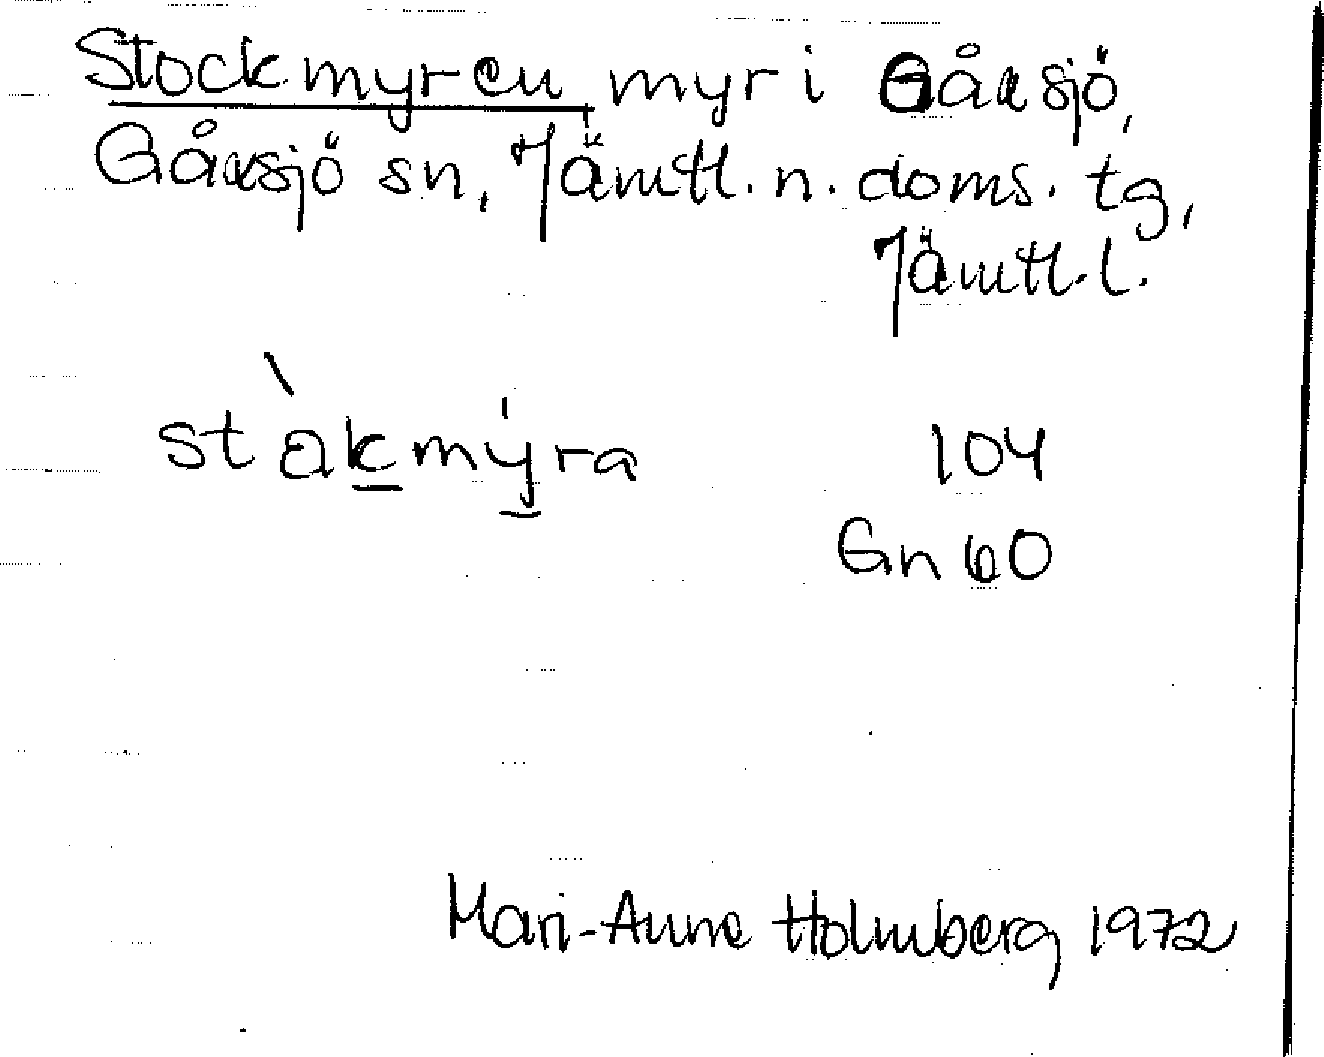 Stockmyren myr i Gåxsjö,
Gåxsjö sn, Jämtl. n. doms. tg,
Jämtl. l.
stàkmýra 104
Gn 60
Mari-Anne Holmberg 1972